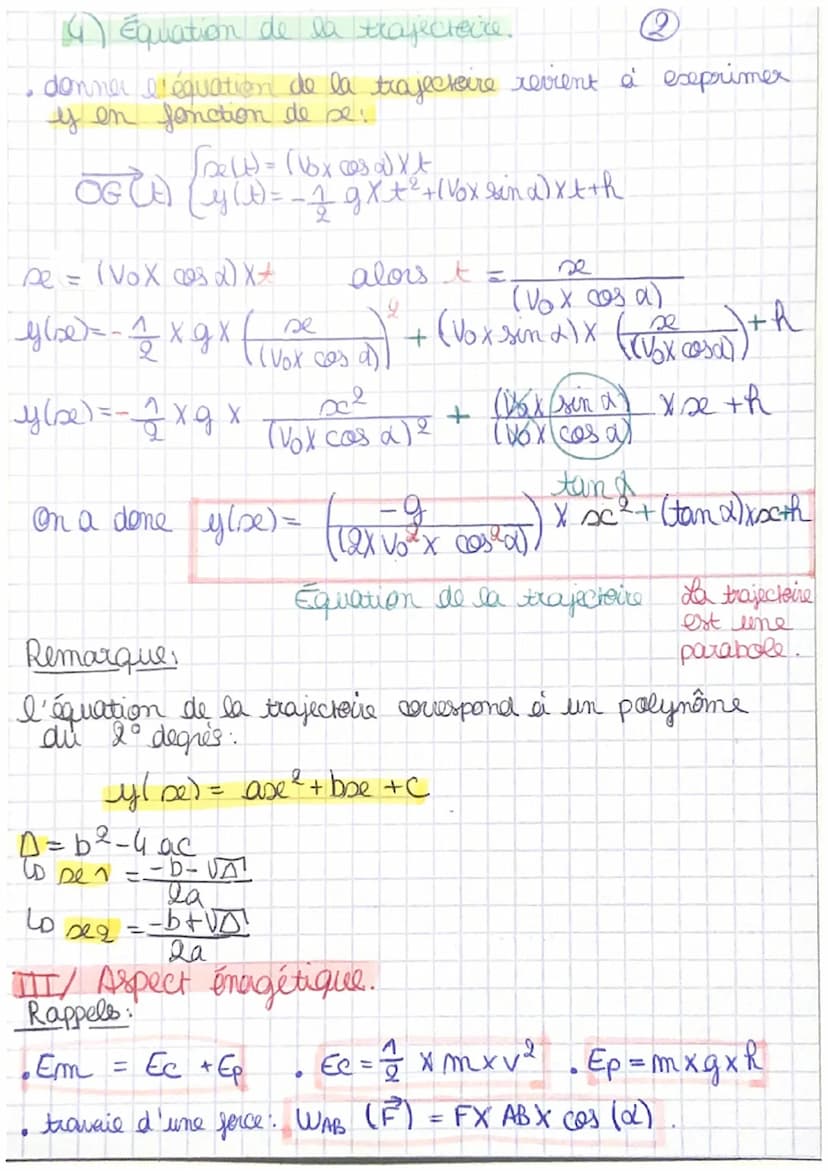 4) Équation de la trajectoire. ②
• donner l'équation de la trajectoire revient à exprimer
y en fonction de x:
OG(t) { x(t) = (V0 x cos α) x t
y(t) = - 1/2 g x t² + (V0 x sin α) x t + h
x = (V0 x cos α) x t alors t = x / (V0 x cos α)
y(x) = - 1/2 x g x (x / (V0 x cos α))² + (V0 x sin α) x (x / (V0 x cos α)) + h
y(x) = - 1/2 x g x x² / (V0 x cos α)² + (V0 x sin α) / (V0 x cos α) x x + h
tan α
On a donc y(x) = (-g / (2 x V0² x cos² α)) x x² + (tan α) x x + h
Équation de la trajectoire
La trajectoire
est une
parabole.
Remarque:
l'équation de la trajectoire correspond à un polynôme
du 2° degrés:
y(x) = ax² + bx + c
Δ = b² - 4 ac
↳ x1 = (-b - √Δ) / 2a
↳ x2 = (-b + √Δ) / 2a
III/ Aspect énergétique.
Rappels:
• Em = Ec + Ep • Ec = 1/2 x m x v² • Ep = m x g x h
• travaie d'une force: WAB (F) = F x AB x cos (α).